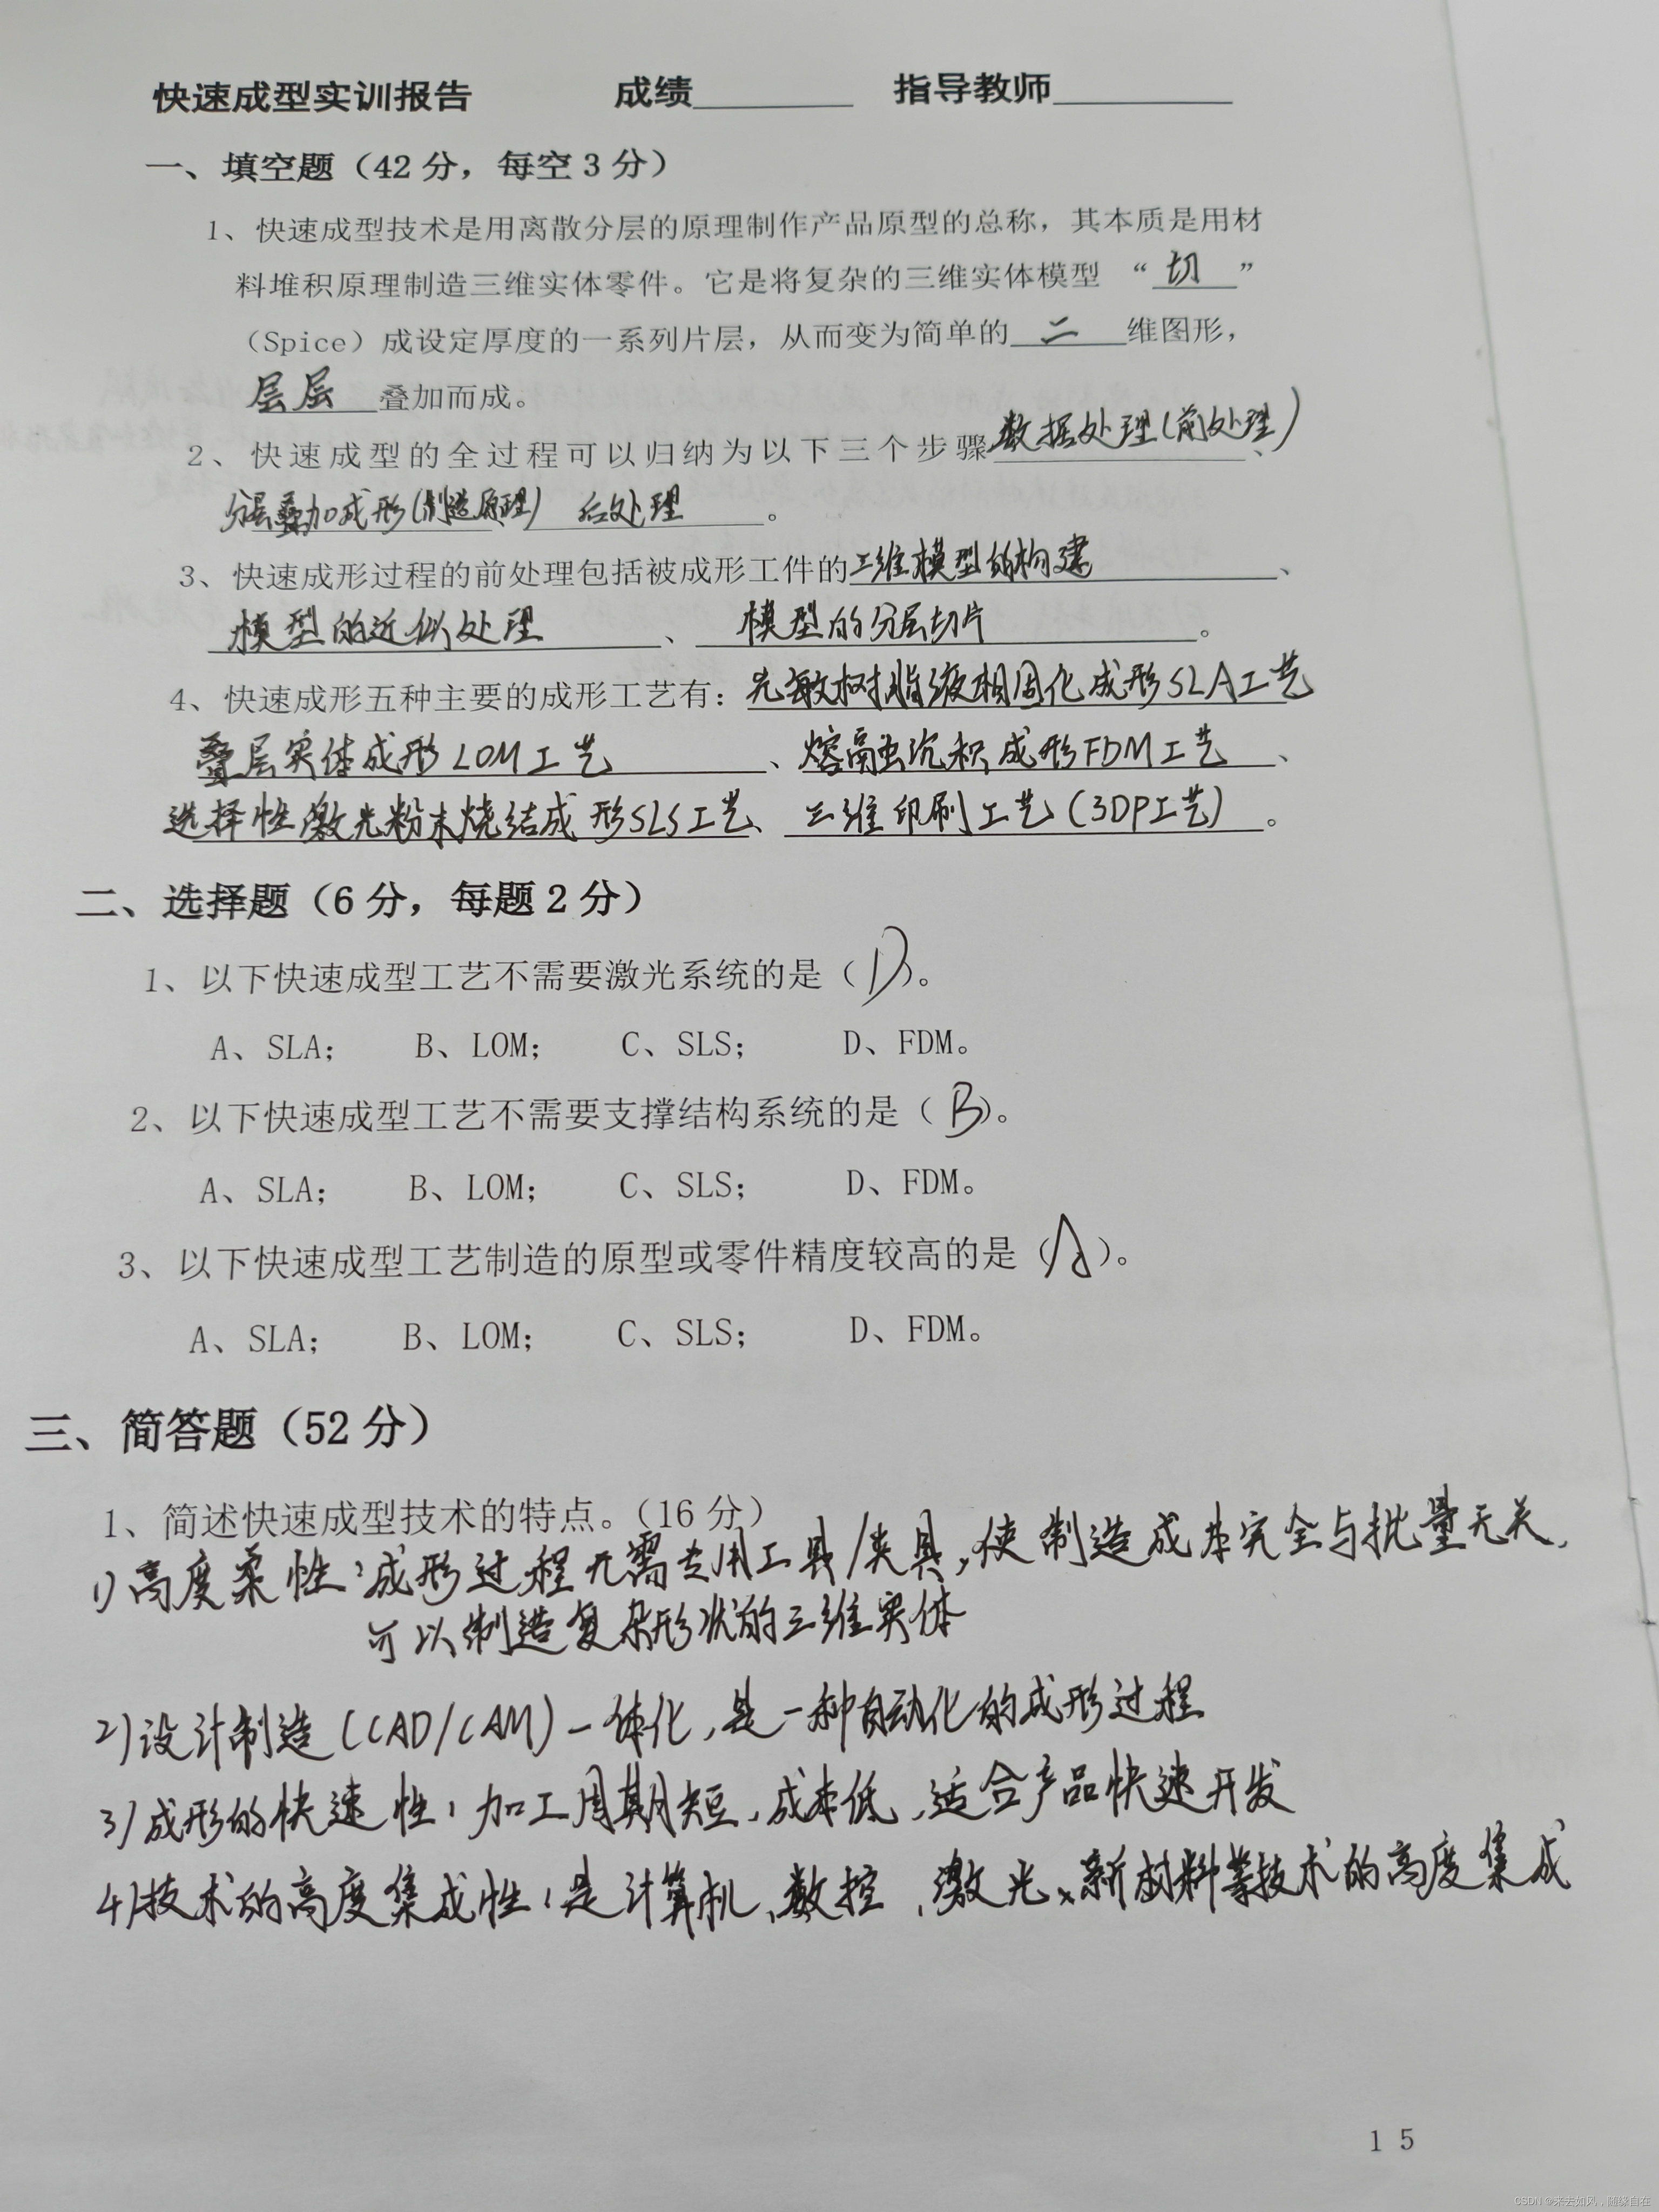 快速成型实训报告 成绩________ 指导教师________
一、填空题（42分，每空3分）
1、快速成型技术是用离散分层的原理制作产品原型的总称，其本质是用材
料堆积原理制造三维实体零件。它是将复杂的三维实体模型 “切”
（Spice）成设定厚度的一系列片层，从而变为简单的 二 维图形，
层层 叠加而成。
2、快速成型的全过程可以归纳为以下三个步骤数据处理(前处理)、
分层叠加成形(制造原理)、后处理。
3、快速成形过程的前处理包括被成形工件的三维模型的构建、
模型的近似处理、模型的分层切片。
4、快速成形五种主要的成形工艺有：光敏树脂液相固化成形SLA工艺
叠层实体成形LOM工艺、熔融沉积成形FDM工艺、
选择性激光粉末烧结成形SLS工艺、三维印刷工艺(3DP工艺)。
二、选择题（6分，每题2分）
1、以下快速成型工艺不需要激光系统的是（D）。
A、SLA； B、LOM； C、SLS； D、FDM。
2、以下快速成型工艺不需要支撑结构系统的是（B）。
A、SLA； B、LOM； C、SLS； D、FDM。
3、以下快速成型工艺制造的原型或零件精度较高的是（A）。
A、SLA； B、LOM； C、SLS； D、FDM。
三、简答题（52分）
1、简述快速成型技术的特点。（16分）
1)高度柔性：成形过程无需专用工具/夹具，使制造成本完全与批量无关，
可以制造复杂形状的三维实体
2)设计制造(CAD/CAM)一体化，是一种自动化的成形过程
3)成形的快速性：加工周期短，成本低，适合产品快速开发
4)技术的高度集成性：是计算机、数控、激光、新材料等技术的高度集成
15
CSDN @来去如风，随缘自在